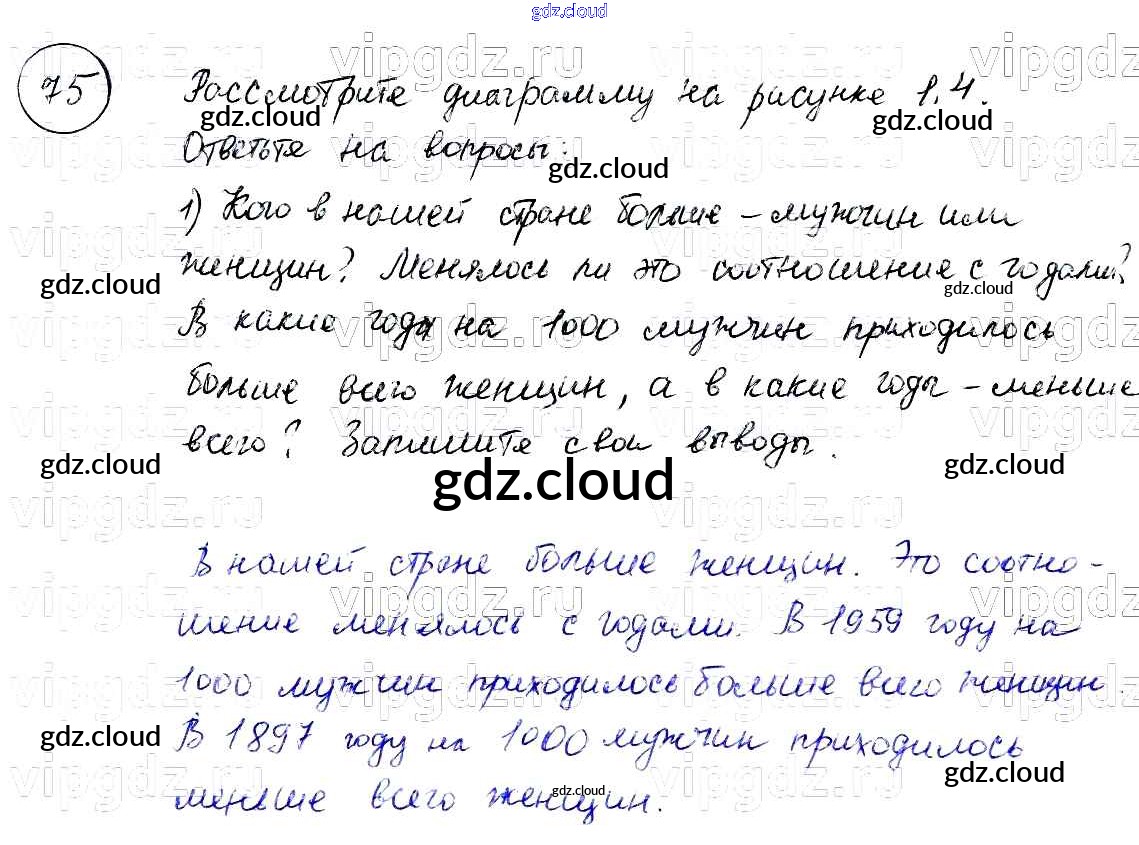 gdz.cloud
75 Рассмотрите диаграмму на рисунке 1.4.
Ответьте на вопросы:
1) Кого в нашей стране больше – мужчин или
женщин? Менялось ли это соотношение с годами?
В какие годы на 1000 мужчин приходилось
больше всего женщин, а в какие годы – меньше
всего? Запишите свои выводы.
gdz.cloud
В нашей стране больше женщин. Это соотно-
шение менялось с годами. В 1959 году на
1000 мужчин приходилось больше всего женщин.
В 1897 году на 1000 мужчин приходилось
меньше всего женщин.